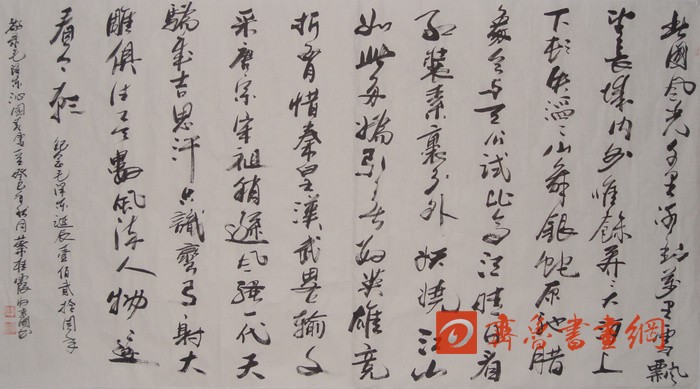 北國風光千里冰封萬里雪飄
望長城內外惟餘莽莽大河上
下頓失滔滔山舞銀蛇原馳腊
象欲與天公試比高須晴日看
紅裝素裹分外妖嬈江山
如此多嬌引無數英雄競
折腰惜秦皇漢武略輸文
采唐宗宋祖稍遜風騷一代天
驕成吉思汗只識彎弓射大
雕俱往矣數風流人物還
看今朝
紀念毛澤東誕辰壹佰貳拾周年
敬录毛澤東沁園春雪一首癸巳年秋月
齊魯書畫網